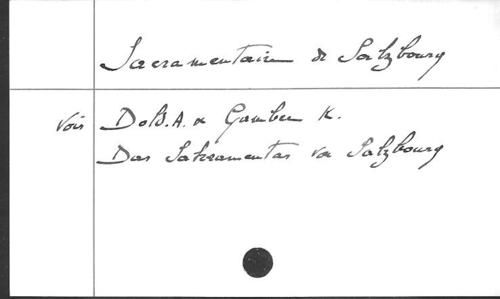 Sacramentaire de Salzbourg
Voir Dold.A. & Gamber K.
Das Sakramentar von Salzbourg